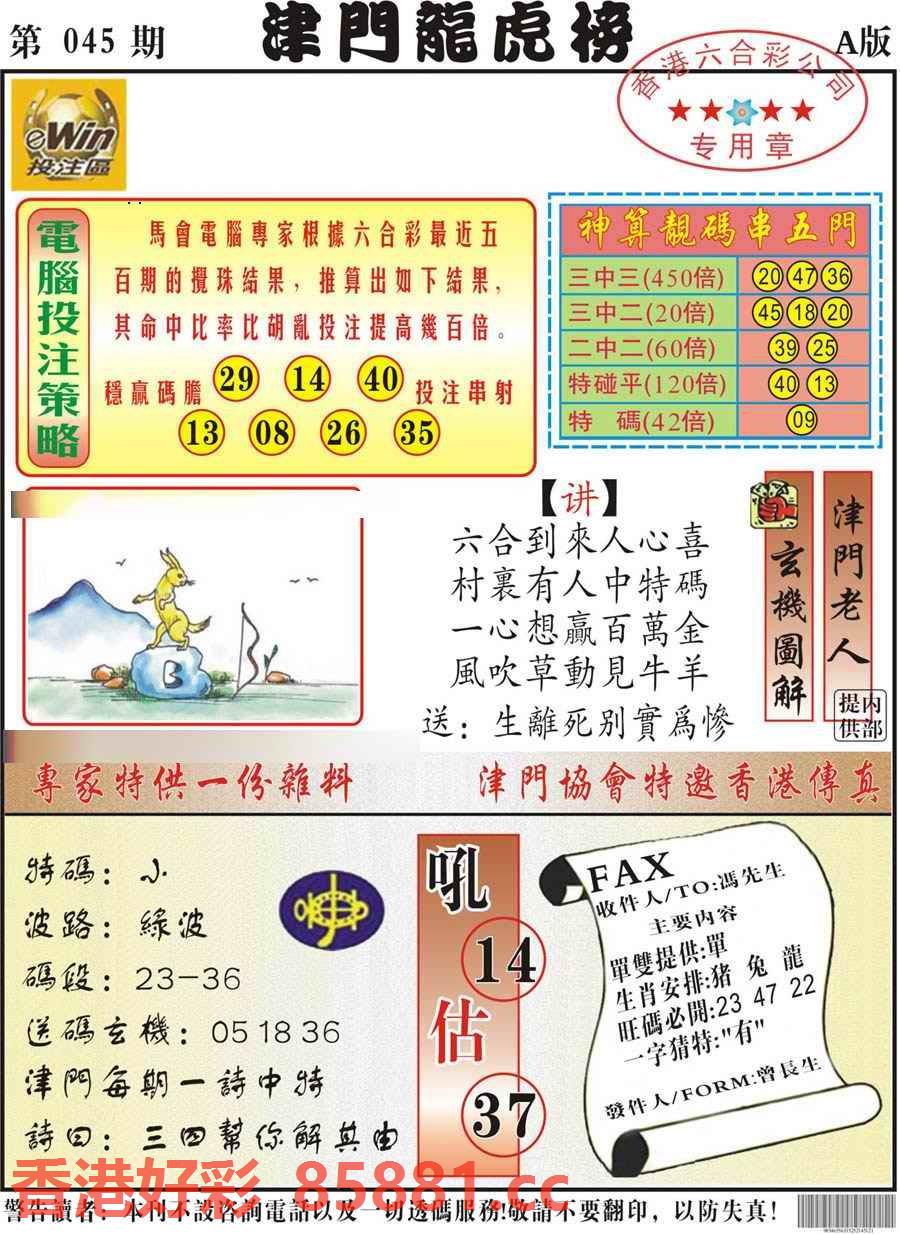 第 045 期
津門龍虎榜
A版
香港六合彩公司
专用章
eWin
投注區
電腦投注策略
馬會電腦專家根據六合彩最近五
百期的攪珠結果，推算出如下結果，
其命中比率比胡亂投注提高幾百倍。
穩贏碼膽 29 14 40 投注串射
13 08 26 35
神算靚碼串五門
三中三(450倍) 20 47 36
三中二(20倍) 45 18 20
二中二(60倍) 39 25
特碰平(120倍) 40 13
特 碼(42倍) 09
B
【讲】
六合到來人心喜
村裏有人中特碼
一心想贏百萬金
風吹草動見牛羊
送：生離死別實爲慘
玄機圖解
津門老人
内部提供
專家特供一份雜料
津門協會特邀香港傳真
特碼：小
波路：綠波
碼段：23-36
送碼玄機：05 18 36
津門每期一詩中特
詩曰：三四幫你解其由
吼
14
估
37
FAX
收件人/TO:馮先生
主要内容
單雙提供:單
生肖安排:猪 兔 龍
旺碼必開:23 47 22
一字猜特:"有"
發件人/FORM:曾長生
香港好彩 85881.cc
警告讀者：本刊不設咨詢電話以及一切透碼服務!敬請不要翻印，以防失真!